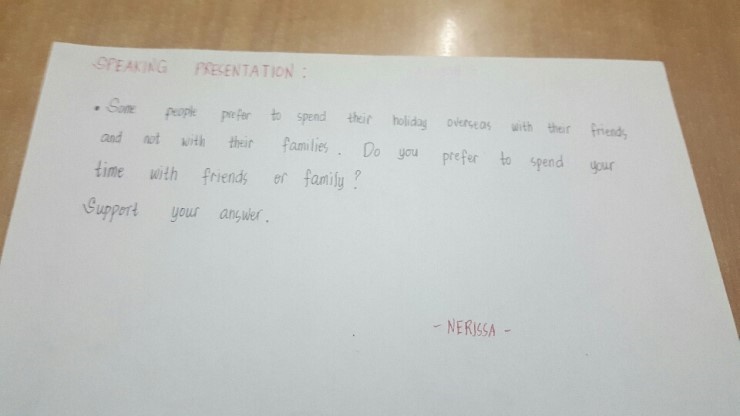 SPEAKING PRESENTATION :
• Some people prefer to spend their holiday overseas with their friends,
and not with their families. Do you prefer to spend your
time with friends or family?
Support your answer.
- NERISSA -